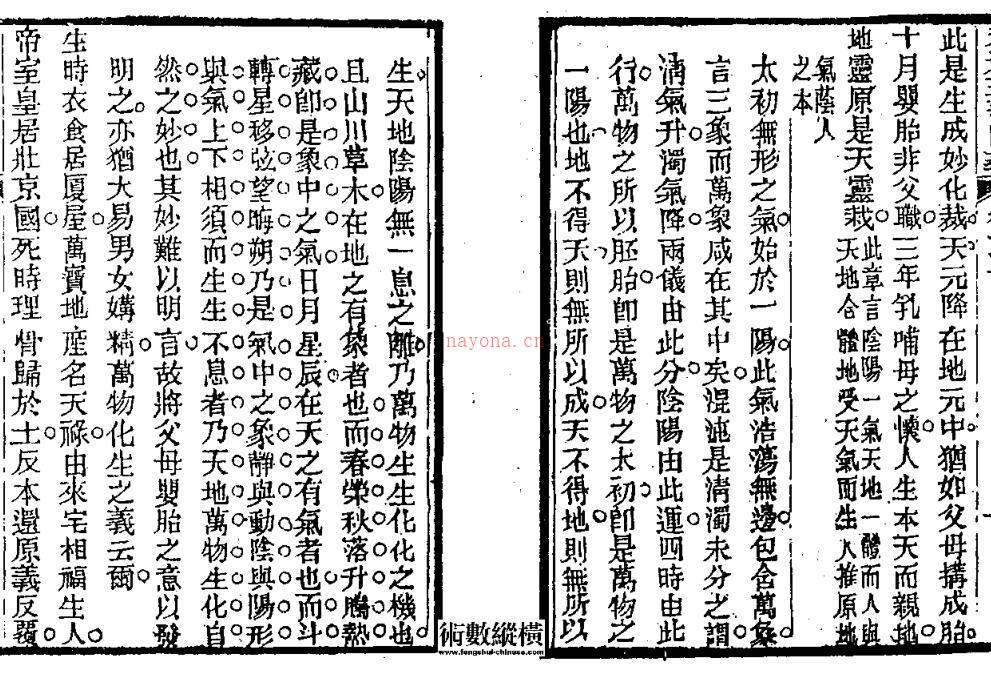 此是生成妙化裁天元降在地元中猶如父母搆成胎
十月嬰胎非父職三年乳哺母之懷人生本天而親地
地靈原是天靈栽此章言陰陽一氣天地一體而人與
天地合體地受天氣而生人推原地
氣蔭人
之本
太初無形之氣始於一陽此氣浩蕩無邊包含萬象
言三象而萬象咸在其中矣混沌是清濁未分之謂
清氣升濁氣降兩儀由此分陰陽由此運四時由此
行萬物之所以胚胎卽是萬物之太初卽是萬物之
一陽也地不得天則無所以成天不得地則無所以
生天地陰陽無一息之離乃萬物生生化化之機也
且山川草木在地之有象者也而春榮秋落升騰熱
藏卽是象中之氣日月星辰在天之有氣者也而斗
轉星移弦望晦朔乃是氣中之象靜與動陰與陽形
與氣上下相須而生生不息者乃天地萬物生化自
然之妙也其妙難以明言故將父母嬰胎之意以發
明之亦猶大易男女媾精萬物化生之義云爾
生時衣食居厦屋萬寶地産名天祿由來宅相福生人
帝室皇居壯京國死時理骨歸於土反本還原義反覆
橫縱數術
www.fengshui-chinese.com
nayona.cn